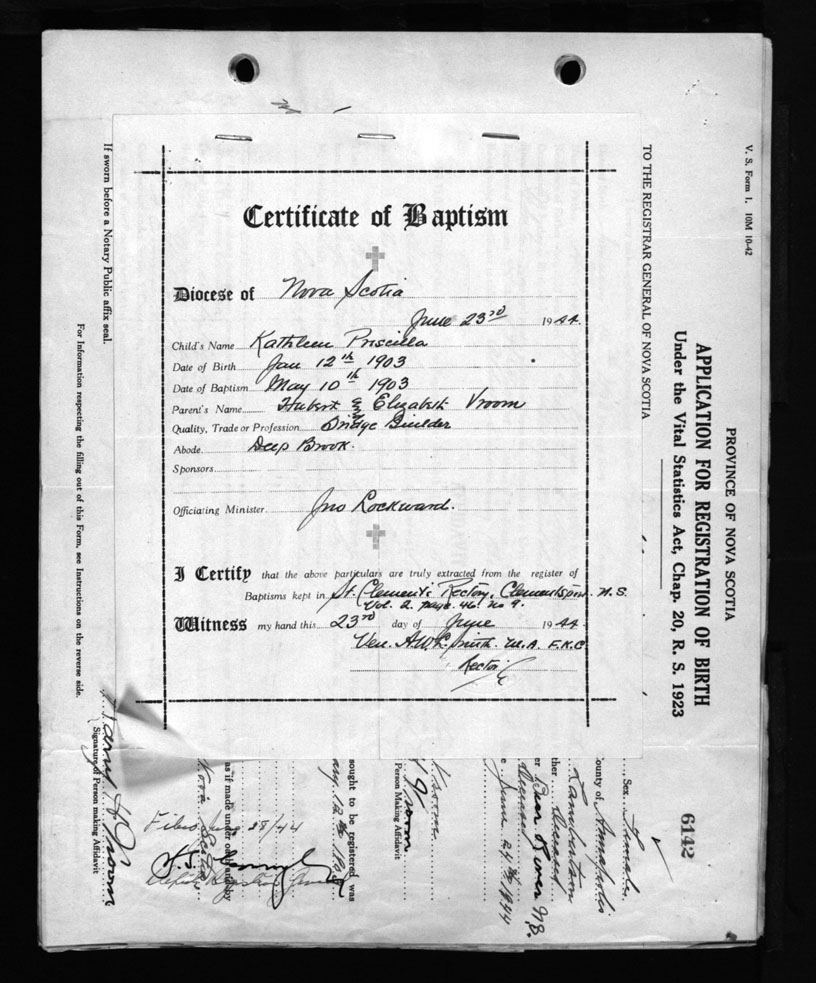 Certificate of Baptism
Diocese of Nova Scotia
June 23rd 1944.
Child's Name Kathleen Priscilla
Date of Birth Jan 12th 1903
Date of Baptism May 10th 1903
Parent's Name Hubert and Elizabeth Vroom
Quality, Trade or Profession Bridge Builder
Abode Deep Brook.
Sponsors
Officiating Minister Jno Lockward.
I Certify that the above particulars are truly extracted from the register of
Baptisms kept in St. Clement's Rectory, Clementsport. N.S.
Vol. 2. page. 46. No 9.
Witness my hand this 23rd day of June 1944
Ven. A.W.L. Smith. M.A. F.K.C
Rector
V. S. Form 1. 10M 10-42
PROVINCE OF NOVA SCOTIA
APPLICATION FOR REGISTRATION OF BIRTH
Under the Vital Statistics Act, Chap. 20, R. S. 1923
TO THE REGISTRAR GENERAL OF NOVA SCOTIA
6142
Sex Female
ounty of Annapolis
ther Deceased
er Bear River N.S.
Deceased
e June 24th 1944
Vroom
Person Making Affidavit
sought to be registered was
as if made under oath and by
Nova Scotia
Filed June 28/44
If sworn before a Notary Public affix seal.
Harry H Vroom
Signature of Person making Affidavit
For Information respecting the filling out of this Form, see Instructions on the reverse side.